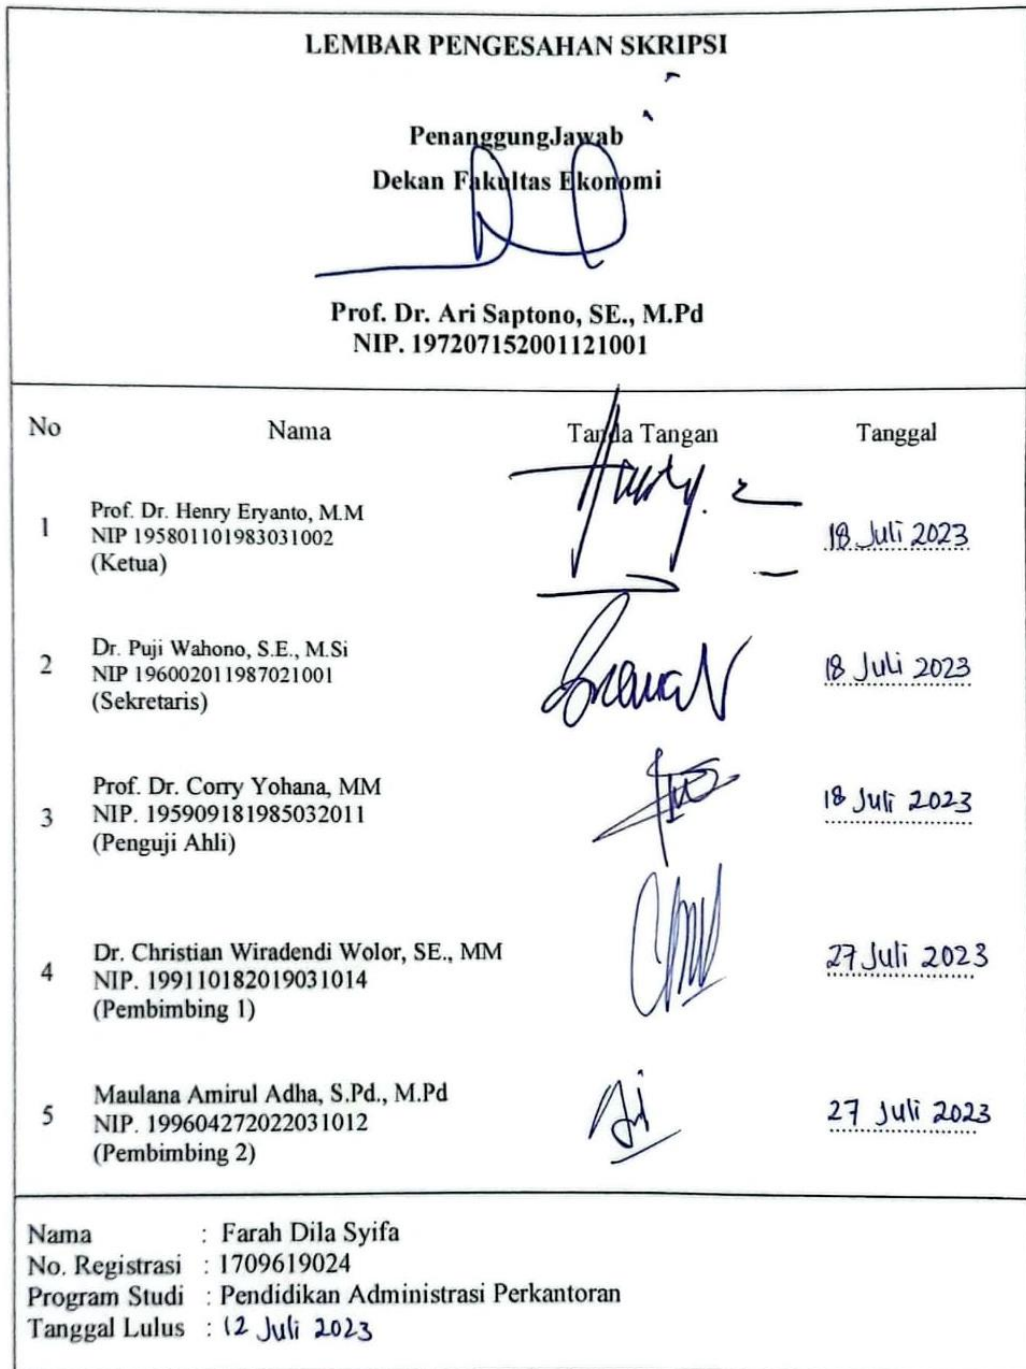 LEMBAR PENGESAHAN SKRIPSI
PenanggungJawab
Dekan Fakultas Ekonomi
Prof. Dr. Ari Saptono, SE., M.Pd
NIP. 197207152001121001
No Nama Tanda Tangan Tanggal
1 Prof. Dr. Henry Eryanto, M.M
NIP 195801101983031002
(Ketua)
18 Juli 2023
2 Dr. Puji Wahono, S.E., M.Si
NIP 196002011987021001
(Sekretaris)
18 Juli 2023
3 Prof. Dr. Corry Yohana, MM
NIP. 195909181985032011
(Penguji Ahli)
18 Juli 2023
4 Dr. Christian Wiradendi Wolor, SE., MM
NIP. 199110182019031014
(Pembimbing 1)
27 Juli 2023
5 Maulana Amirul Adha, S.Pd., M.Pd
NIP. 199604272022031012
(Pembimbing 2)
27 Juli 2023
Nama : Farah Dila Syifa
No. Registrasi : 1709619024
Program Studi : Pendidikan Administrasi Perkantoran
Tanggal Lulus : 12 Juli 2023